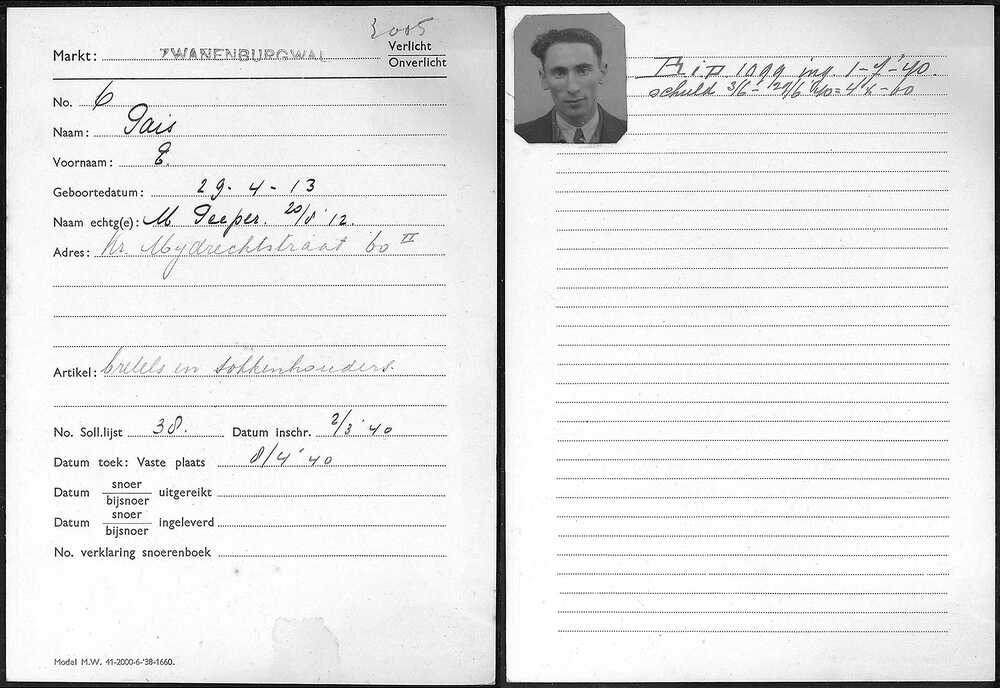 3005
Markt: ZWANENBURGWAL Verlicht
Onverlicht
No. 6
Naam: Pais
Voornaam: E.
Geboortedatum: 29-4-13
Naam echtg(e): M Peeper. 20/8'12.
Adres: Kr. Mydrechtstraat 60 II
Artikel: bretels en sokkenhouders.
No. Soll.lijst 38. Datum inschr. 2/3'40
Datum toek: Vaste plaats 8/4'40
Datum snoer/bijsnoer uitgereikt
Datum snoer/bijsnoer ingeleverd
No. verklaring snoerenboek
Modal M.W. 41-2000-6-'38-1660.
1099 ing. 1-7-'40.
schuld 3/6- 29/6 '40=